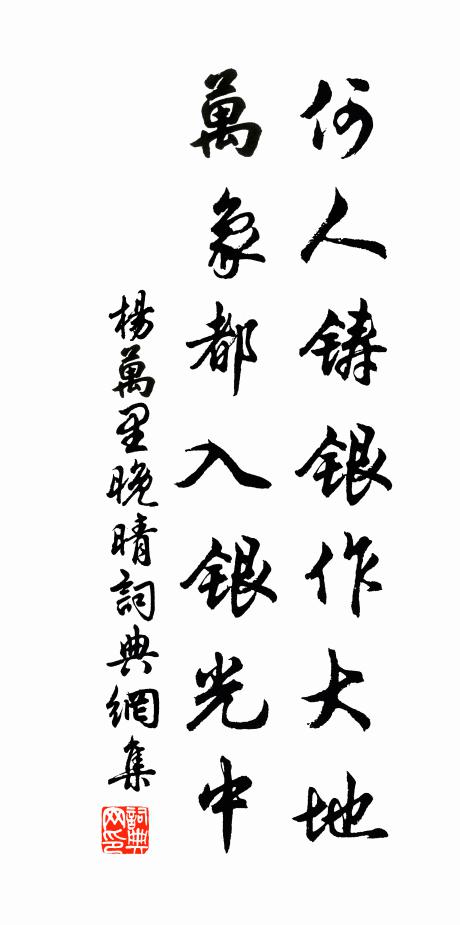 何人铸银作大地
萬象都入銀光中
楊萬里晚晴詞典網集
詞典网印